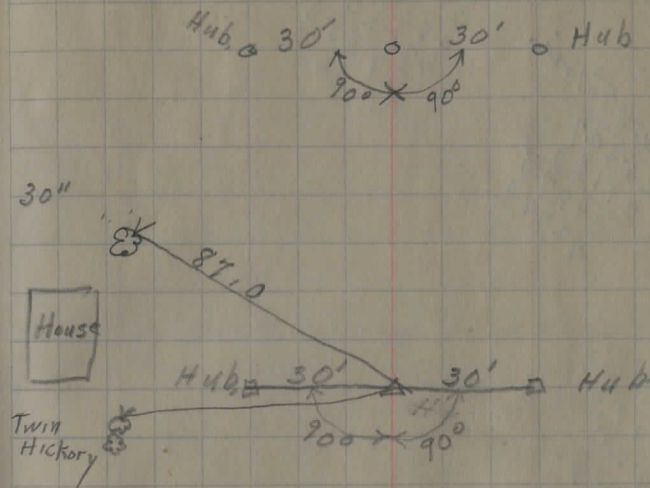 Hub 30' 30' Hub
90° 90°
30"
87.0
House
Hub 30' 30' Hub
90° 90°
Twin
Hickory